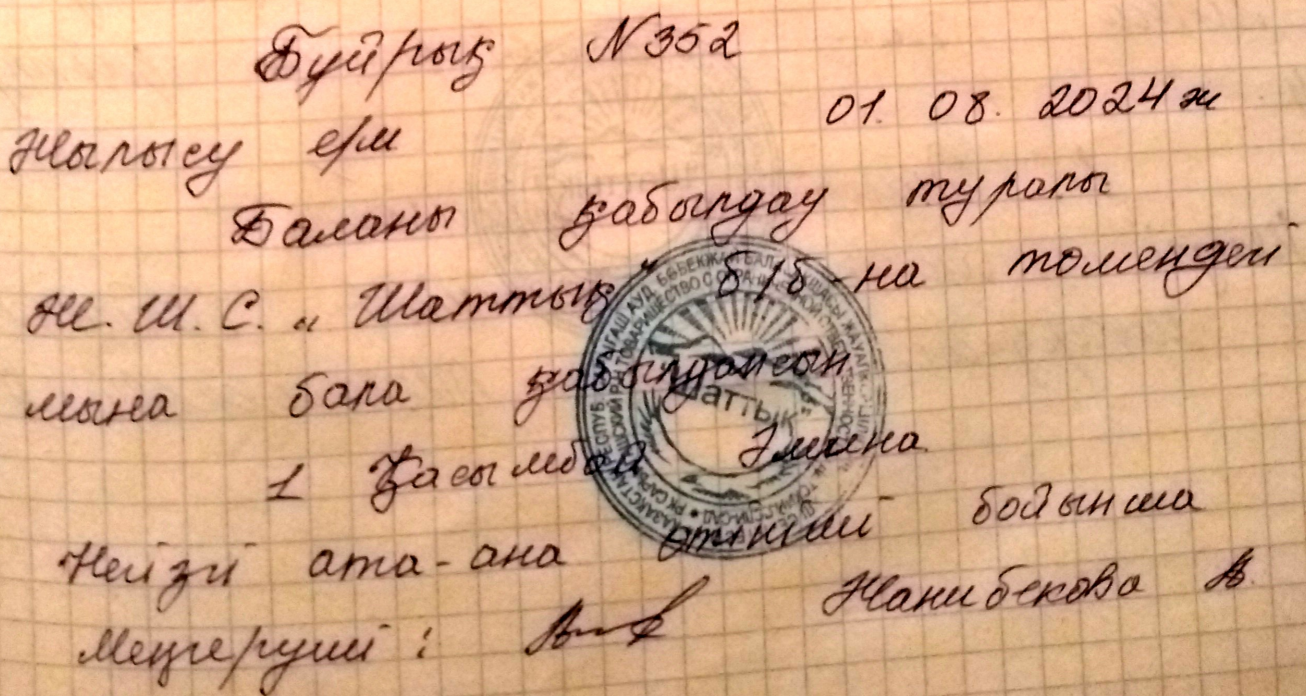 Бұйрық N352
01. 08. 2024 ж
Жылысу е/м
Баланы қабылдау туралы
Ж.Ш.С. „Шаттық" б/б-на төмендегі
мына бала қабылдансын
1 Қасымбай Әмина
Негізгі ата-ана өтініші бойынша
Меңгеруші: Жанибекова А.
Шаттық